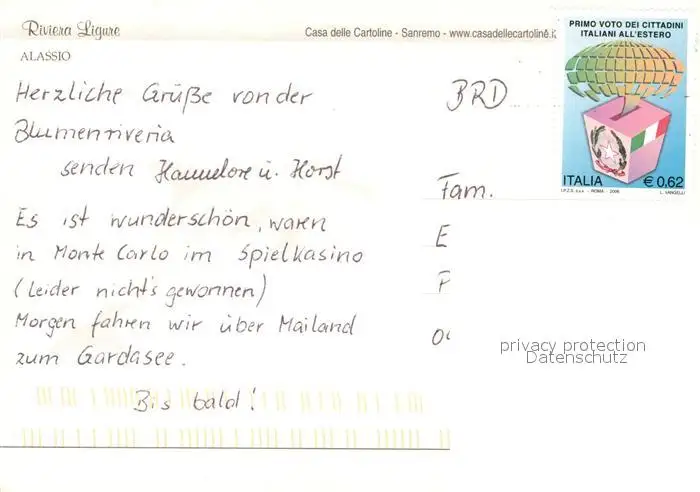 Riviera Ligure
ALASSIO
Casa delle Cartoline - Sanremo - www.casadellecartoline.it
PRIMO VOTO DEI CITTADINI
ITALIANI ALL'ESTERO
ITALIA € 0.62
I.P.Z.S. s.p.a. - ROMA - 2006 L. VANGELLI
Herzliche Grüße von der
Blumenriveria
senden Hannelore u. Horst
Es ist wunderschön, waren
in Monte Carlo im Spielkasino
(Leider nicht's gewonnen)
Morgen fahren wir über Mailand
zum Gardasee.
Bis bald!
BRD
Fam.
E
P
privacy protection
Datenschutz